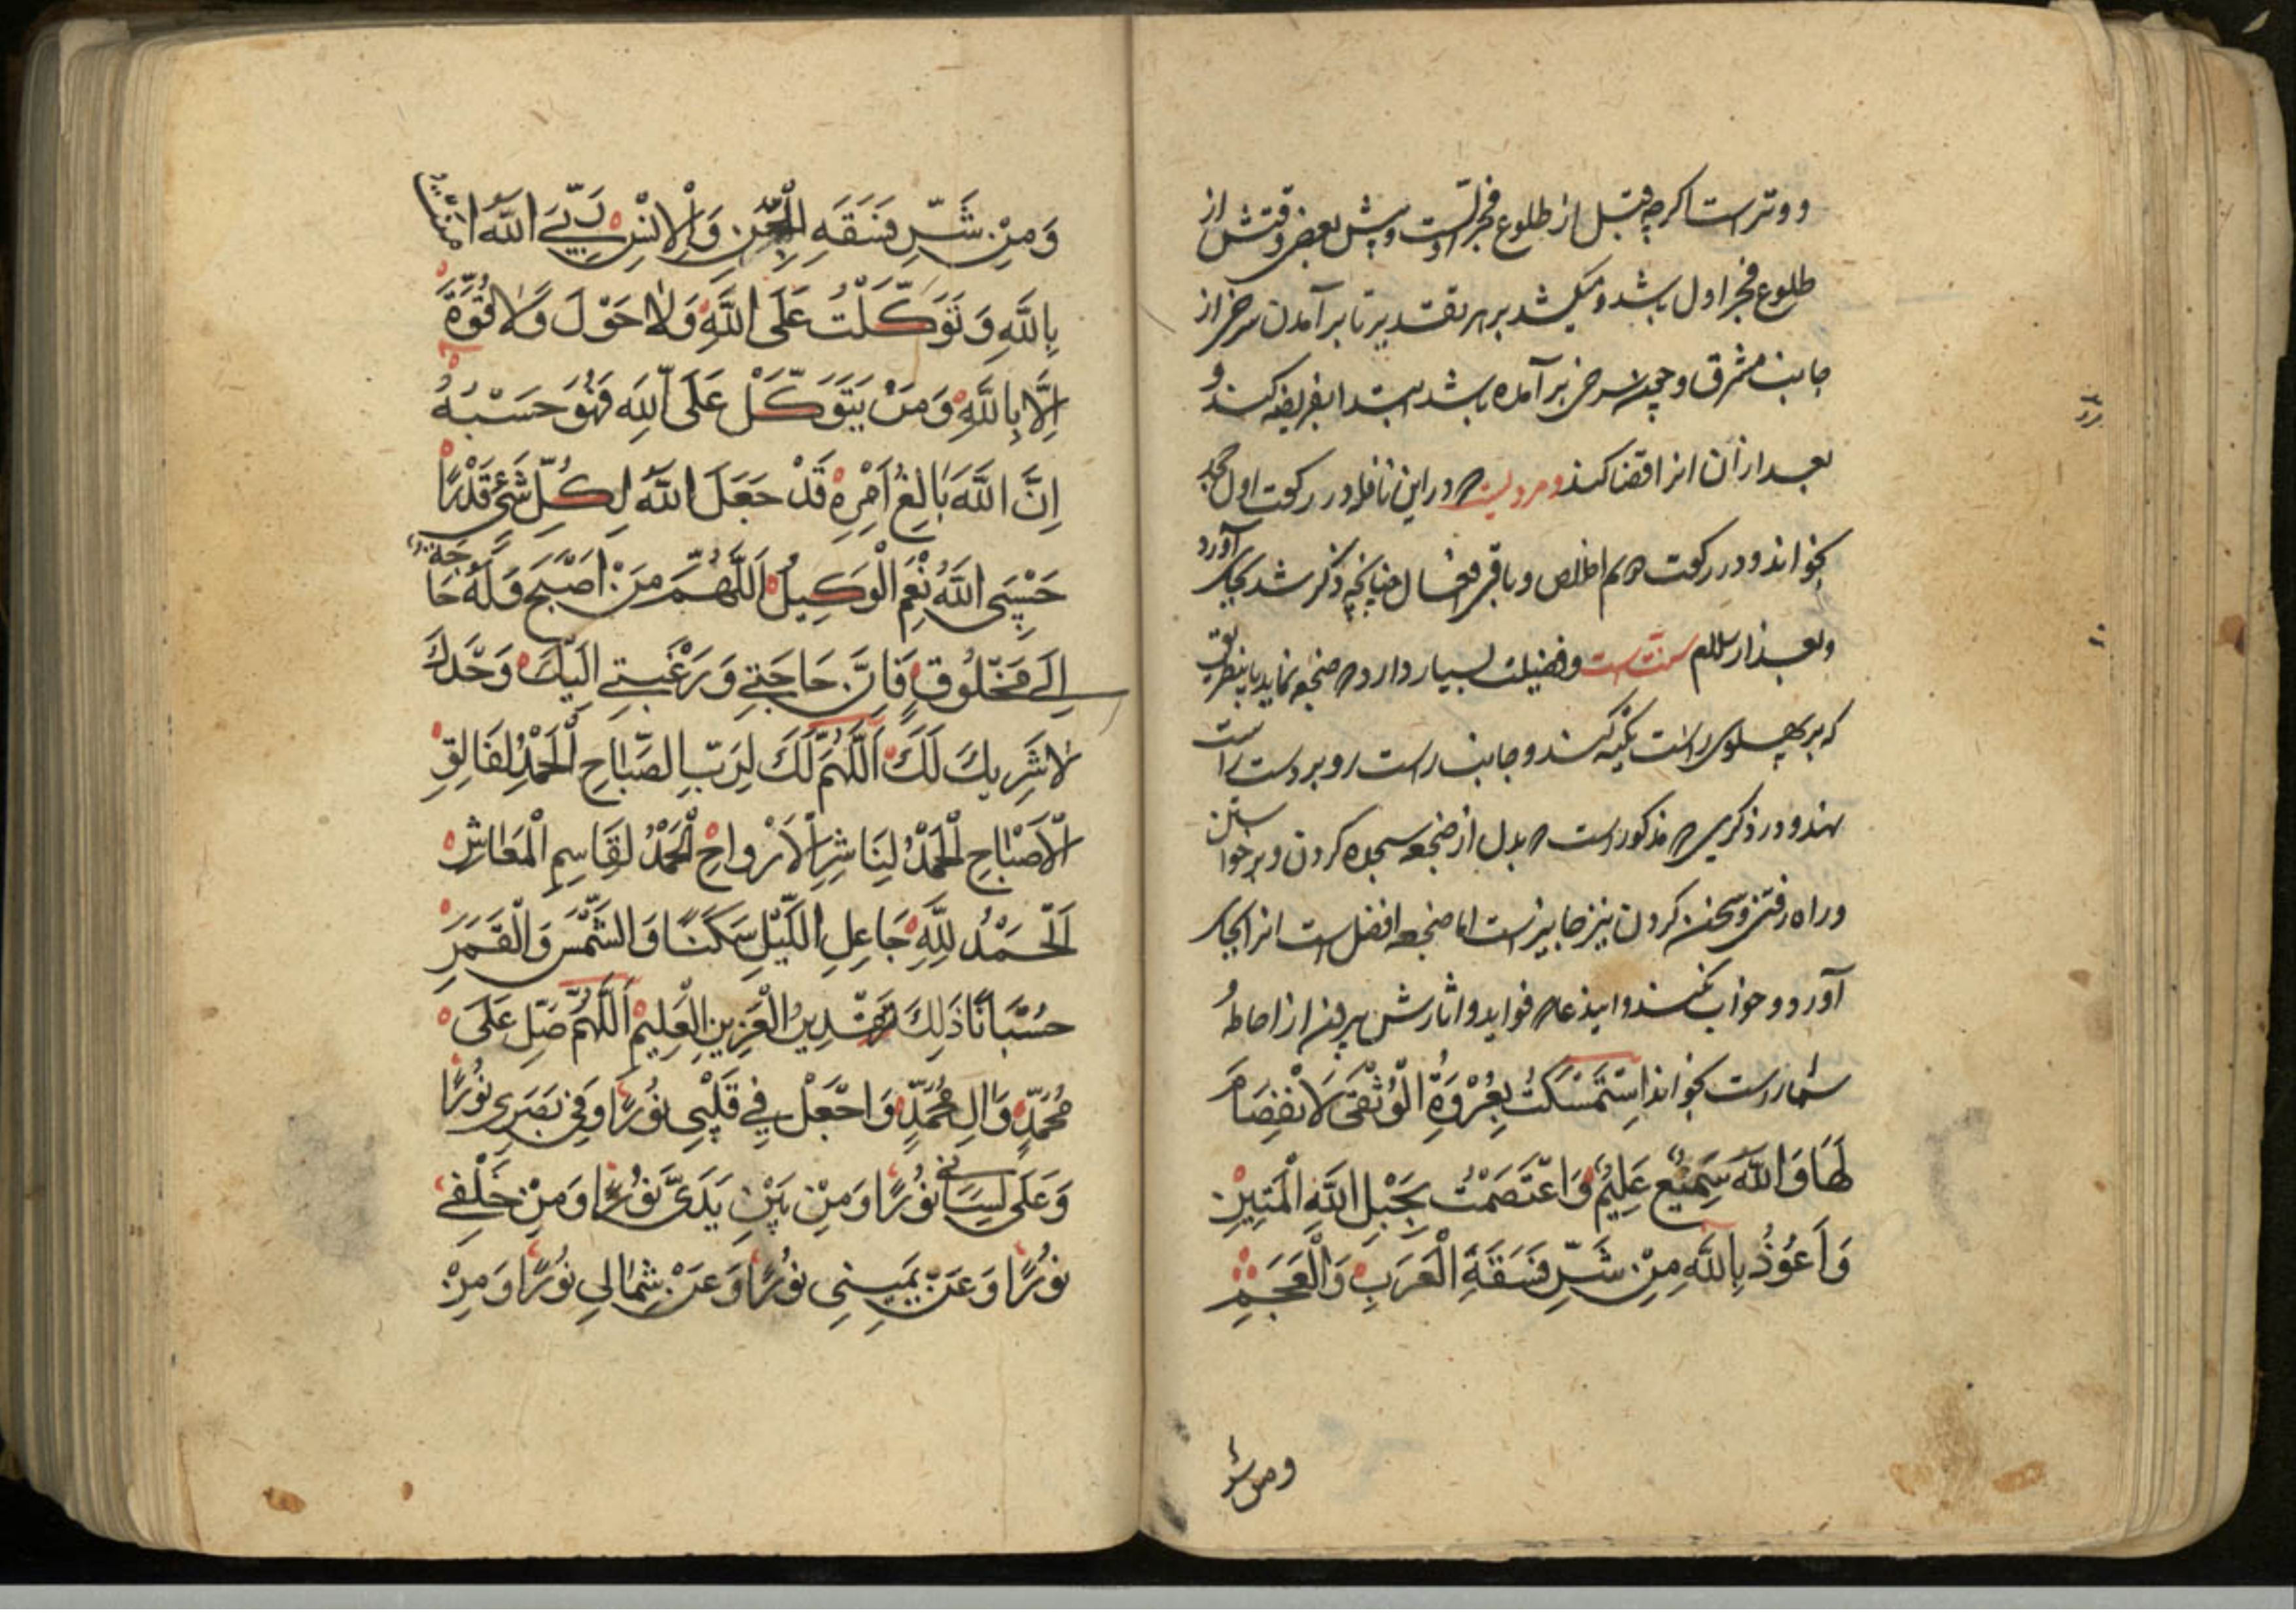 و وتر است اکرچه قبل از طلوع فجر اوست و پیش بعضی وقتش از
طلوع فجر اول باشد و میکشد بر هر تقدیر تا بر آمدن سرخی از
جانب مشرق و چون سرخی بر آمده باشد ابتدا بفریضه کند و
بعد از آن انرا قضا کند و مرویست که در این نافله در رکعت اول جحد
بخواند و در رکعت دویم اخلاص و باقی افعال چنانچه ذکر شد بجای آورد
و بعد از سلام سنت است و فضیلت بسیار دارد که ضجعه نماید باینطریق
که بر پهلوی راست تکیه کند و جانب راست رو بر دست راست
نهد و در ذکری که مذکور است که بدل از ضجعه سجده کردن و برخواستن
و راه رفتن و سخن کردن نیز جایز است اما ضجعه افضل است انرا بجای
آورد و خواب نکند و اینذعا که فواید و اثارش بیرون از احاطهٔ
شمار است بخواند اِسْتَمْسَكْتُ بِعُرْوَةِ الْوُثْقَى لَا انْفِصَامَ
لَهَا وَاللَّهُ سَمِيْعٌ عَلِيْمٌ وَاعْتَصَمْتُ بِحَبْلِ اللَّهِ الْمَتِيْنِ
وَاَعُوْذُ بِاللَّهِ مِنْ شَرِّ فَسَقَةِ الْعَرَبِ وَالْعَجَمِ
ومن شر
وَمِنْ شَرِّ فَسَقَةِ الْجِنِّ وَالْاِنْسِ رَبِّيَ اللَّهُ اٰمَنْتُ
بِاللَّهِ وَتَوَكَّلْتُ عَلَى اللَّهِ وَلَا حَوْلَ وَلَا قُوَّةَ
اِلَّا بِاللَّهِ وَمَنْ يَتَوَكَّلْ عَلَى اللَّهِ فَهُوَ حَسْبُهُ
اِنَّ اللَّهَ بَالِغُ اَمْرِهِ قَدْ جَعَلَ اللَّهُ لِكُلِّ شَيْءٍ قَدْرًا
حَسْبِيَ اللَّهُ نِعْمَ الْوَكِيلُ اَللَّهُمَّ مَنْ اَصْبَحَ وَلَهُ حَاجَةٌ
اِلَى مَخْلُوْقٍ فَاِنَّ حَاجَتِي وَرَغْبَتِي اِلَيْكَ وَحْدَكَ
لَا شَرِيكَ لَكَ اَللَّهُمَّ لَكَ لِرَبِّ الصَّبَاحِ اَلْحَمْدُ لِفَالِقِ
الْاَصْبَاحِ الْحَمْدُ لِنَاشِرِ الْاَرْوَاحِ الْحَمْدُ لِقَاسِمِ الْمَعَاشِ
اَلْحَمْدُ لِلَّهِ جَاعِلِ اللَّيْلِ سَكَنًا وَالشَّمْسَ وَالْقَمَرَ
حُسْبَانًا ذَلِكَ تَقْدِيرُ الْعَزِيزِ الْعَلِيمِ اَللَّهُمَّ صَلِّ عَلَى
مُحَمَّدٍ وَالِ مُحَمَّدٍ وَاجْعَلْ فِي قَلْبِي نُوْرًا وَفِي بَصَرِي نُوْرًا
وَعَلَى لِسَانِي نُوْرًا وَمِنْ بَيْنِ يَدَيَّ نُوْرًا وَمِنْ خَلْفِي
نُوْرًا وَعَنْ يَمِيْنِي نُوْرًا وَعَنْ شِمَالِي نُوْرًا وَمِنْ